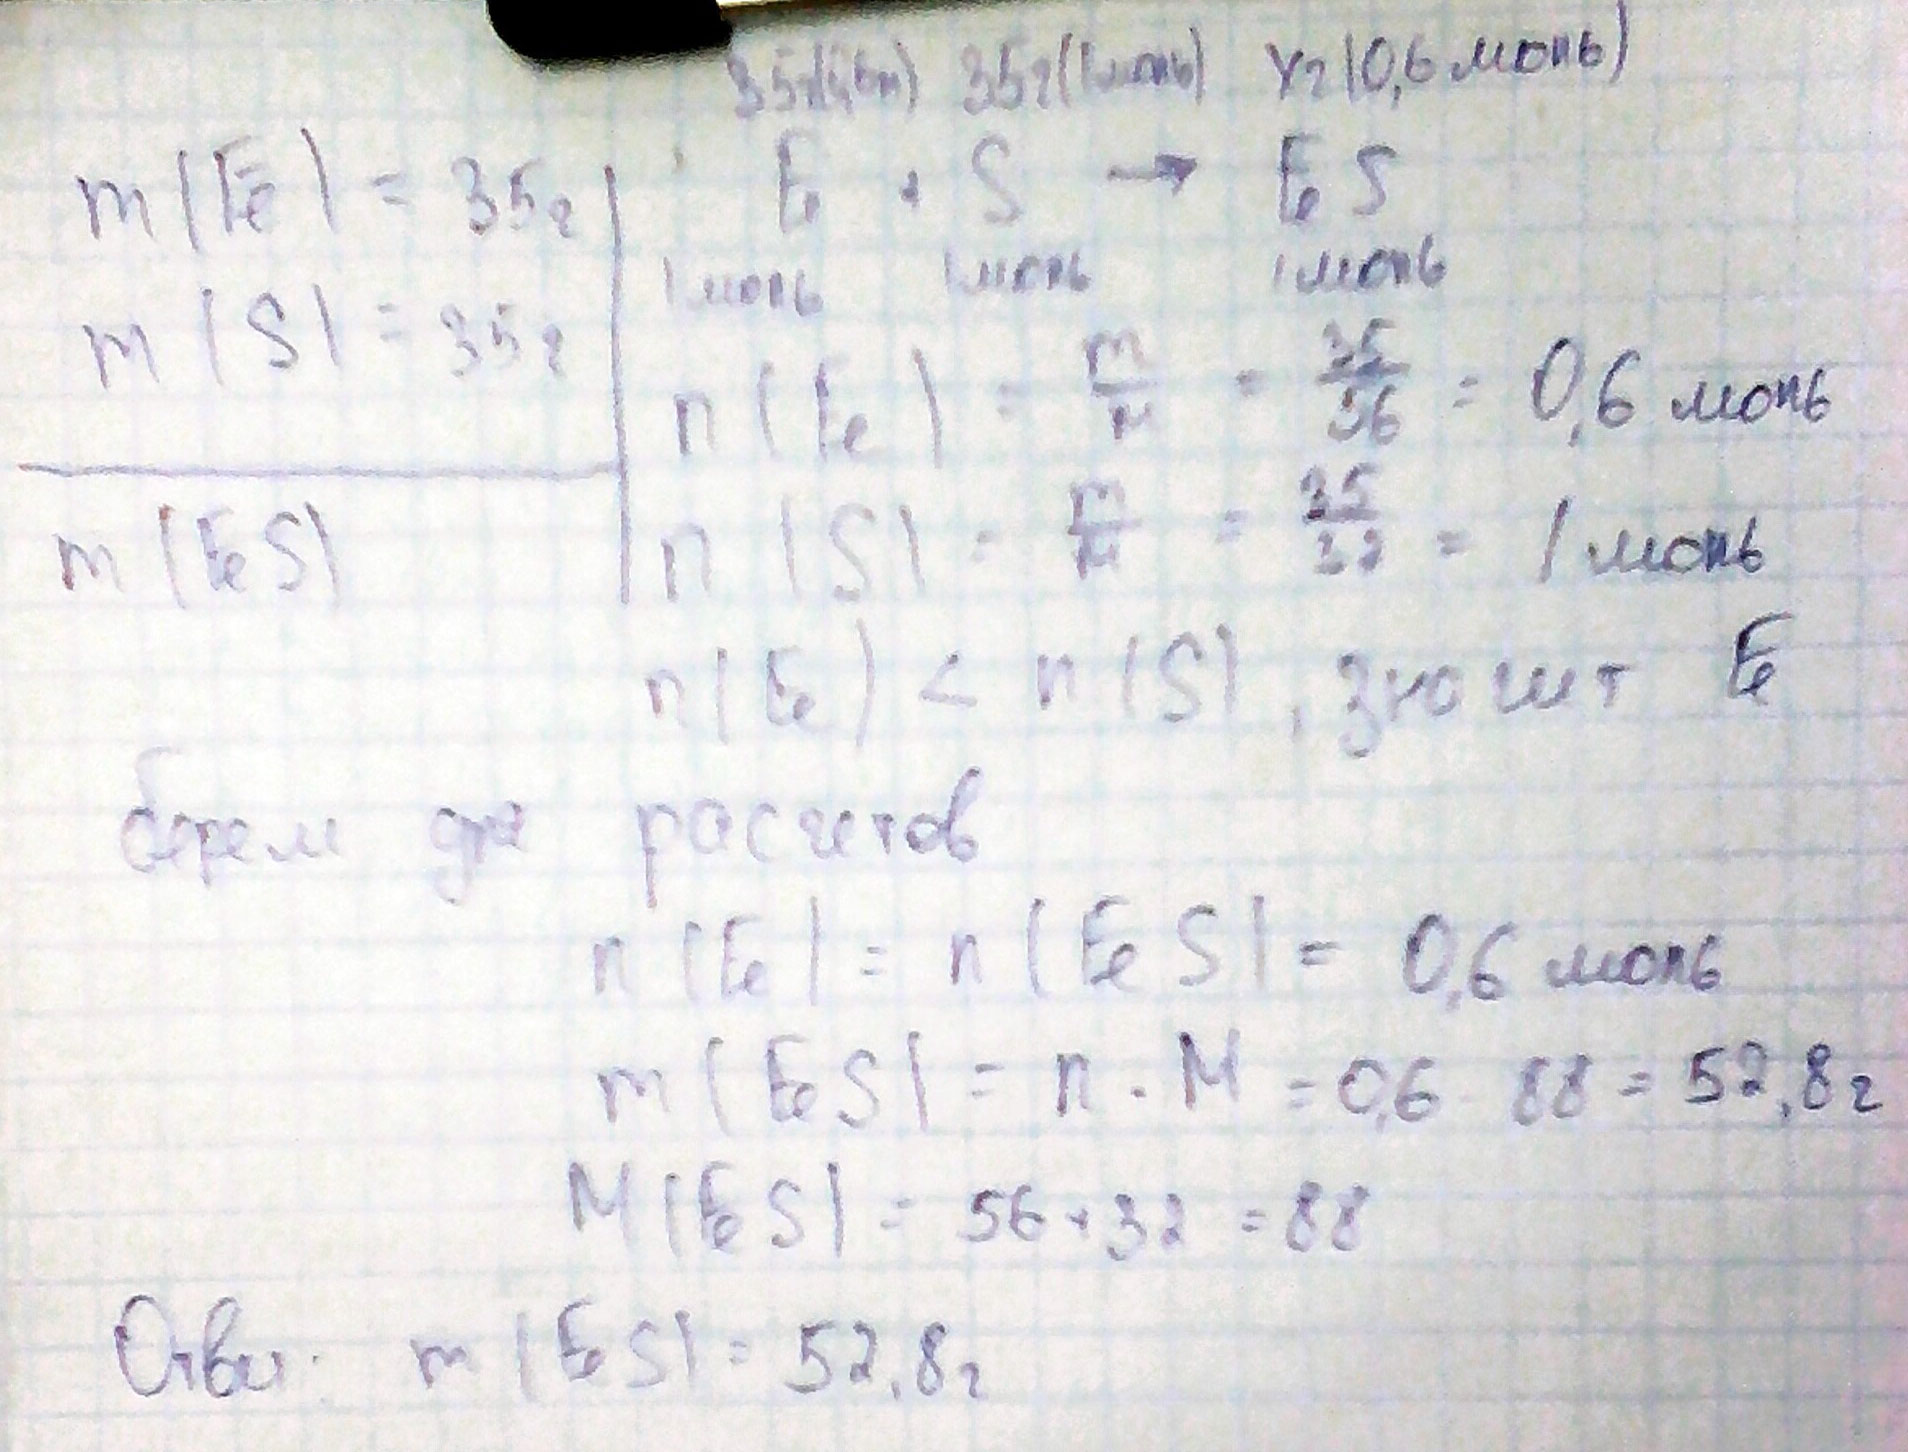 35г(0,6м) 35г(1моль) Xг(0,6моль)
m(Fe) = 35г
Fe + S → FeS
1моль 1моль 1моль
m(S) = 35г
n(Fe) = m/M = 35/56 = 0,6 моль
m(FeS)
n(S) = m/M = 35/32 = 1 моль
n(Fe) < n(S), значит Fe
берем для расчетов
n(Fe) = n(FeS) = 0,6 моль
m(FeS) = n · M = 0,6 · 88 = 52,8г
M(FeS) = 56+32 = 88
Ответ: m(FeS) = 52,8г